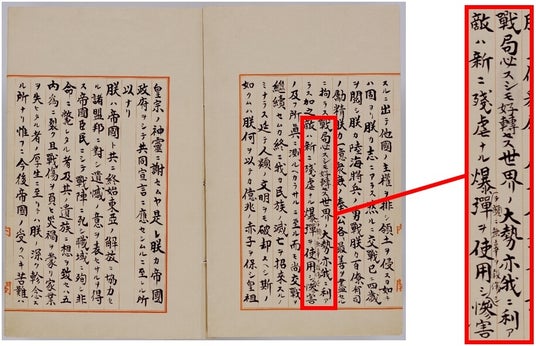 スルニ出テ他國ノ主權ヲ排シ領土ヲ侵スカ如キ
ハ固ヨリ朕カ志ニアラス然ルニ交戰已ニ四歳
ヲ閲シ朕カ陸海將兵ノ勇戰朕カ百僚有司
ノ勵精朕カ一億衆庶ノ奉公各最善ヲ盡セル
ニ拘ラス戰局必スシモ好轉セス世界ノ大勢亦我ニ利ア
ラス加之敵ハ新ニ殘虐ナル爆彈ヲ使用シ慘害
ノ及フ所眞ニ測ルヘカラサルニ至ル而モ尚交戰
ヲ繼續セムカ終ニ我カ民族ノ滅亡ヲ招來スルノ
ミナラス延テ人類ノ文明ヲモ破却スヘシ斯ノ
如クムハ朕何ヲ以テカ億兆ノ赤子ヲ保シ皇祖
皇宗ノ神靈ニ謝セムヤ是レ朕カ帝國
政府ヲシテ共同宣言ニ應セシムルニ至レル所
以ナリ
朕ハ帝國ト共ニ終始東亞ノ解放ニ協力セ
ル諸盟邦ニ對シ遺憾ノ意ヲ表セサルヲ得
ス帝國臣民ニシテ戰陣ニ死シ職域ニ殉シ非
命ニ斃レタル者及其ノ遺族ニ想ヲ致セハ五
内爲ニ裂ク且戰傷ヲ負ヒ災禍ヲ蒙リ家業
ヲ失ヒタル者ノ厚生ニ至リテハ朕ノ深ク軫念ス
ル所ナリ惟フニ今後帝國ノ受クヘキ苦難ハ
戰局必スシモ好轉セス世界ノ大勢亦我ニ利ア
敵ハ新ニ殘虐ナル爆彈ヲ使用シ慘害